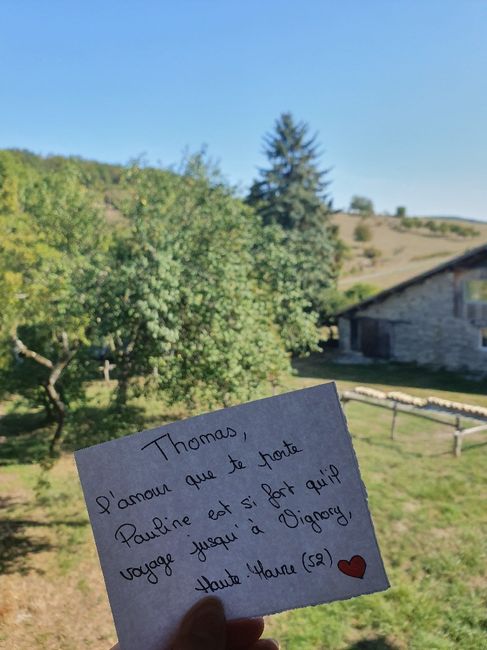 Thomas,
l'amour que te porte
Pauline est si fort qu'il
voyage jusqu'à Vignory,
Haute-Marne (52)